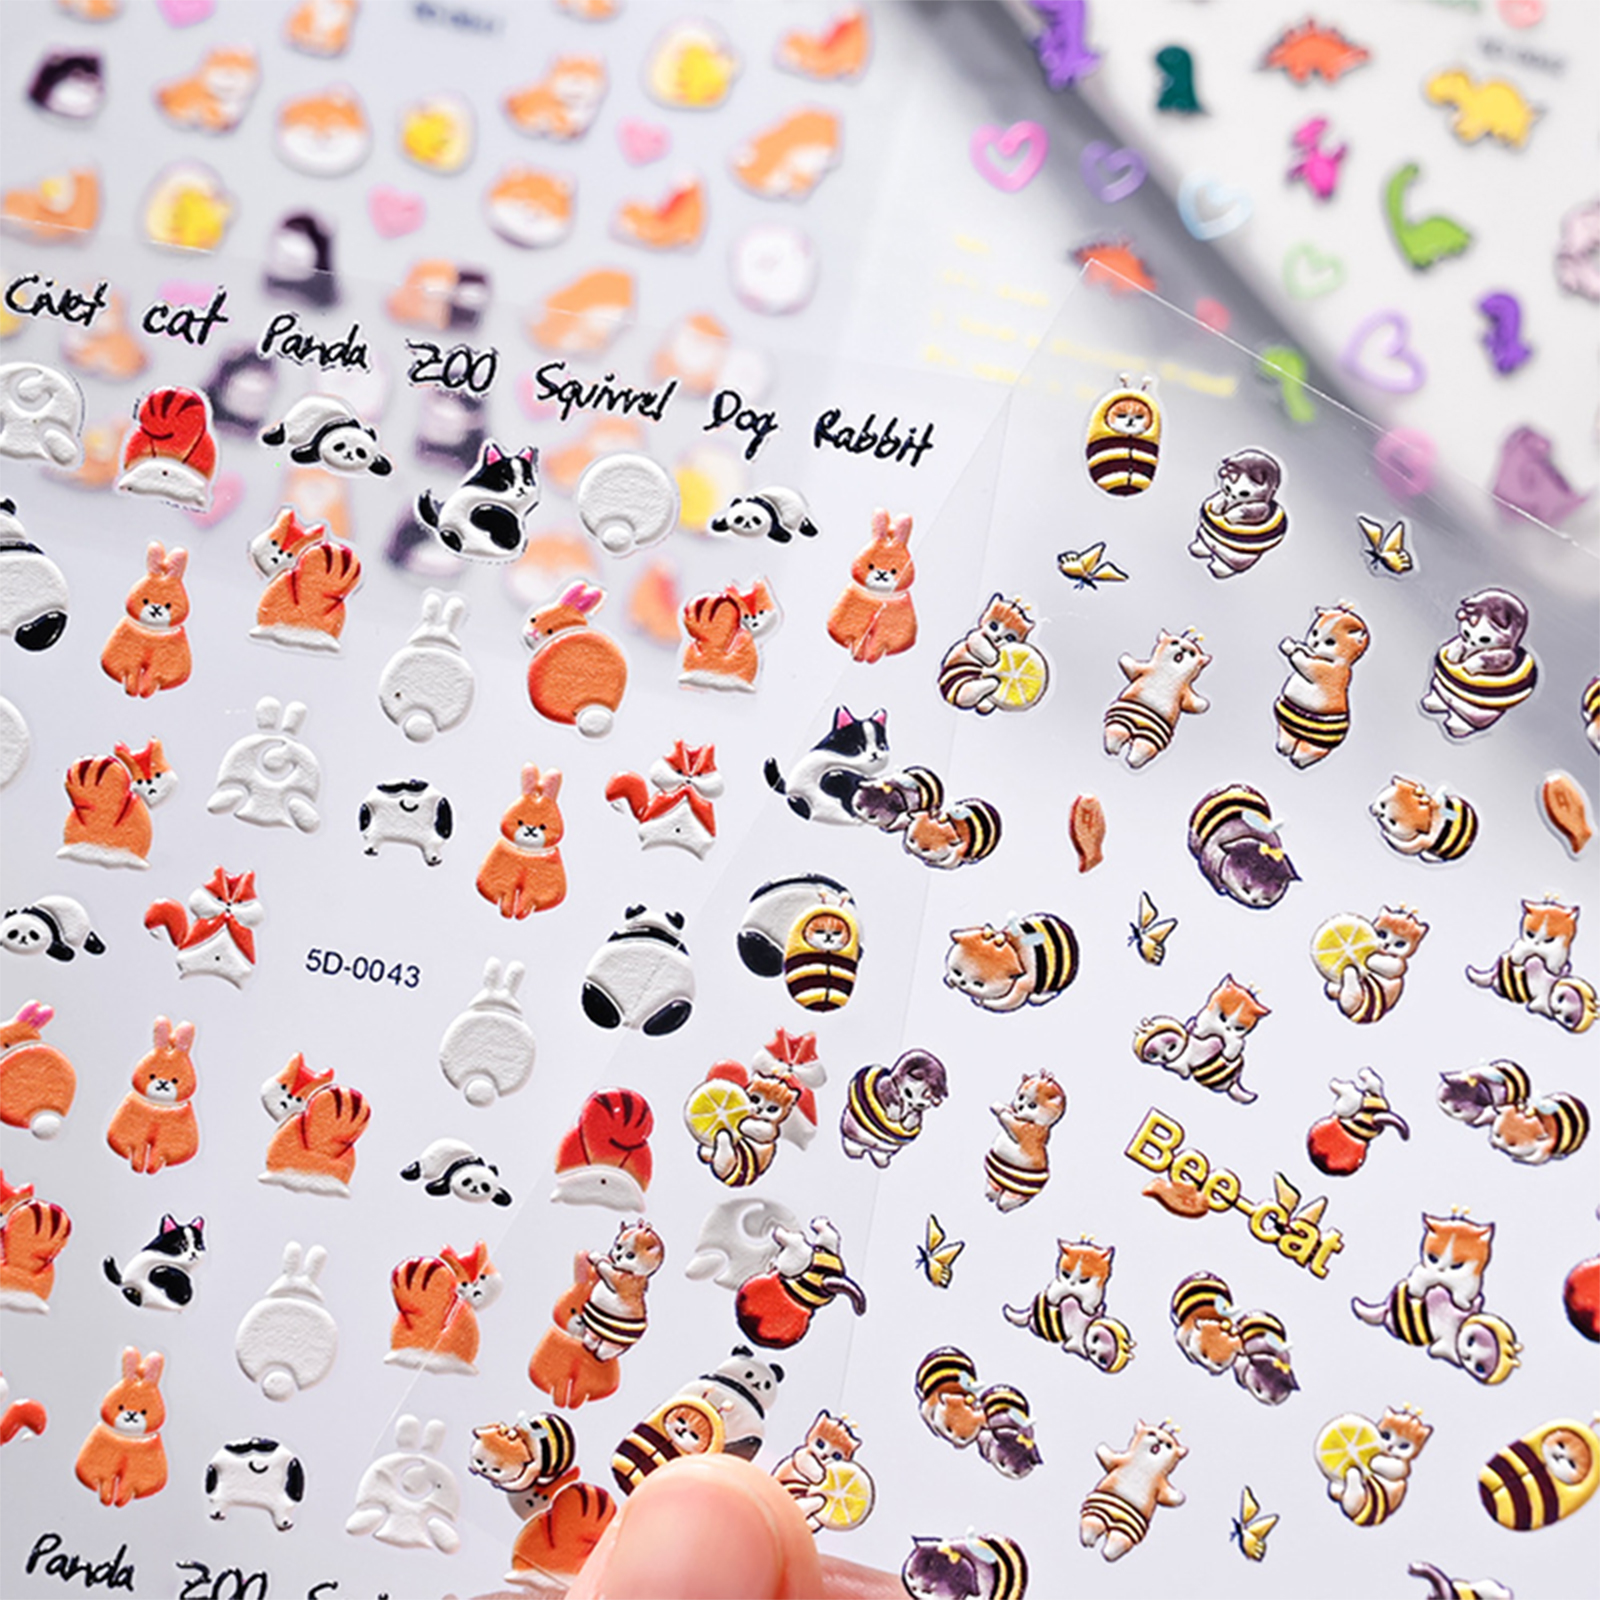 Civet cat Panda ZOO Squirrel Dog Rabbit
5D-0043
Bee-cat
Panda ZOO